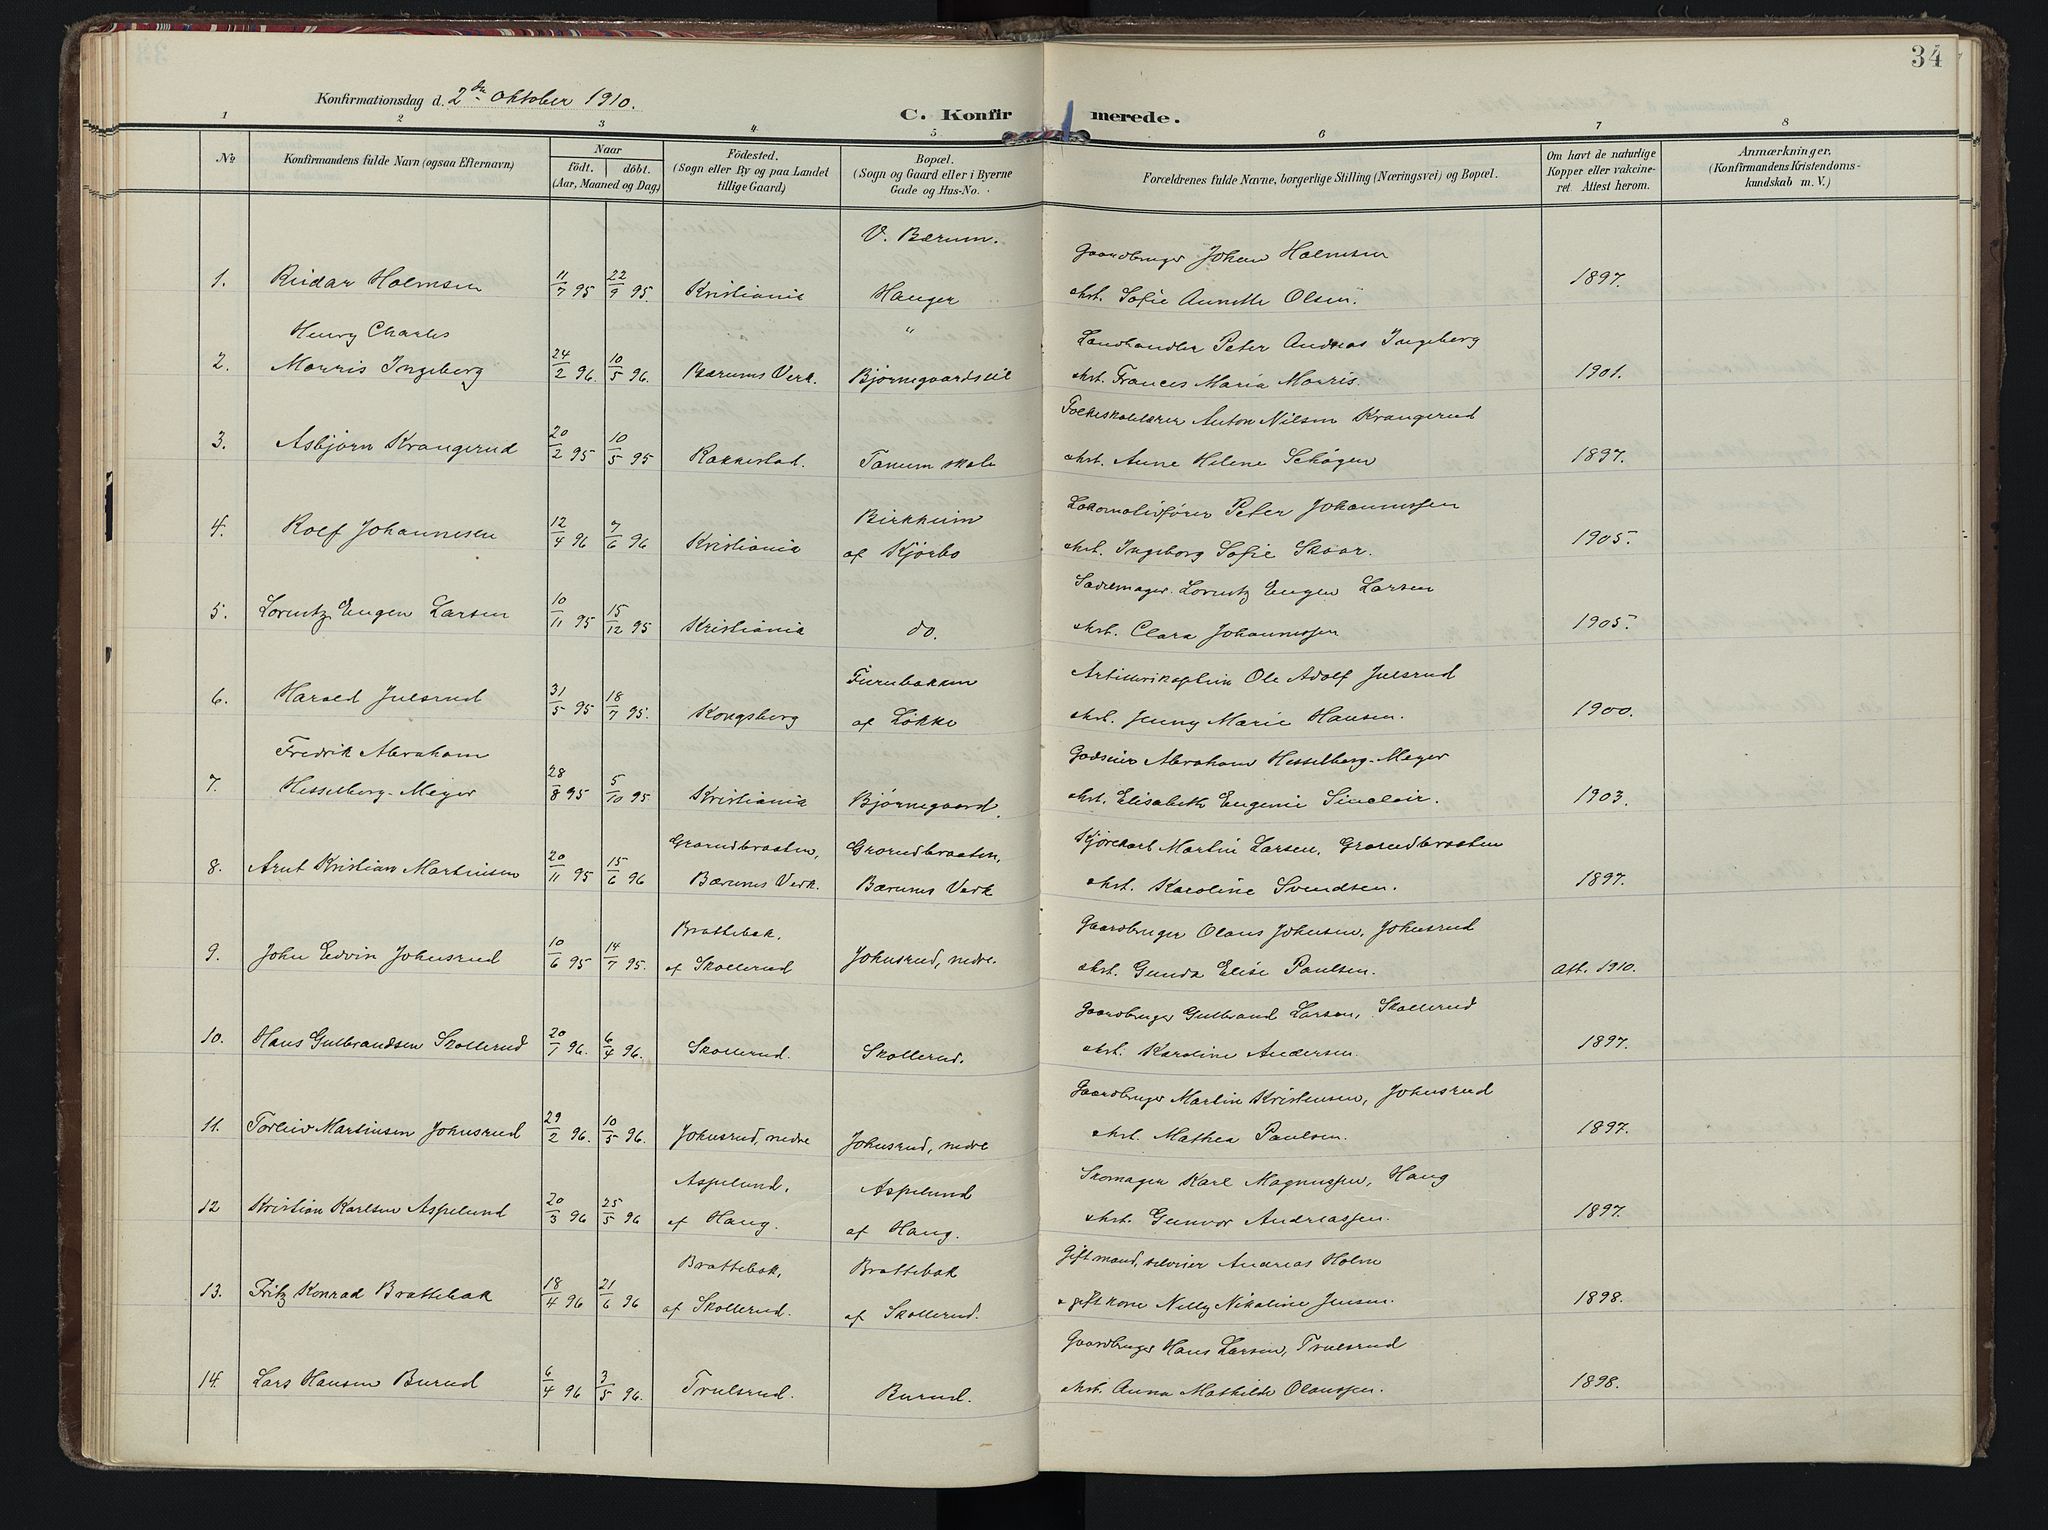 34
Konfirmationsdag d. 2den Oktober 1910.
C. Konfirmerede.
1 2 3 4 5 6 7 8
No
Konfirmandens fulde Navn (ogsaa Efternavn)
Naar
födt. döbt.
(Aar, Maaned og Dag)
Födested.
(Sogn eller By og paa Landet
tillige Gaard)
Bopæl.
(Sogn og Gaard eller i Byerne
Gade og Hus-No.
Forældrenes fulde Navne, borgerlige Stilling (Næringsvei) og Bopæl.
Om havt de naturlige
Kopper eller vakcine-
ret. Attest herom.
Anmærkninger.
(Konfirmandens Kristendoms-
kundskab m. V.)
V. Bærum.
Gaardbruger Johan Holmsen
1. Reidar Holmsen 11/7 95 22/9 95. Kristiania Hauger
Hst. Sofie Annette Olsen. 1897.
Henry Charles "
Landhandler Peter Andreas Ingeberg
2. Morris Ingeberg 24/2 96. 10/5 96. Bærums Verk. Bjørnegaardssvil
Hst. Frances Maria Morris. 1901.
Folkeskolelærer Anton Nilsen Krangerud
3. Asbjørn Krangerud 20/2 95 10/5 95 Rakkestad. Tanum skole
Hst. Anne Helene Schøgen 1897.
Birkheim
Lokomotivfører Peter Johannessen
4. Rolf Johannesen 12/4 96 7/6 96 Kristiania af Kjørbo
Hst. Ingeborg Sofie Skaar. 1905.
Sadlemager Lorentz Eugen Larsen
5. Lorentz Eugen Larsen 10/11 95 15/12 95 Kristiania do.
Hst. Clara Johannessen 1905.
Furubakken
Artillerikaptein Ole Adolf Julsrud
6. Harald Julsrud 31/5 95 18/7 95. Kongsberg af Løkke
Hst. Jenny Marie Hansen. 1900.
Fredrik Abraham
Godseier Abraham Hesselberg-Meyer
7. Hesselberg-Meyer 28/8 95 5/10 95 Kristiania Bjørnegaard.
Hst. Elisabeth Eugenie Sinclair. 1903.
Grorudbraaten, Grorudbraaten,
Kjørekarl Martin Larsen, Grorudbraaten
8. Arnt Kristian Martinsen 20/11 95 15/6 96 Bærums Verk. Bærums Verk
Hst. Karoline Svendsen. 1897.
Brattebak.
Gaardbruger Olaus Johnsen, Johnsrud
9. John Edvin Johnsrud 10/6 95 14/7 95. af Skollerud Johnsrud, nedre.
Hst. Gunda Elise Paulsen. Att. 1910.
Gaardbruger Gulbrand Larsen, Skollerud
10. Hans Gulbrandsen Skollerud 20/1 96. 6/4 96. Skollerud. Skollerud.
Hst. Karoline Andersen. 1897.
Gaardbruger Martin Kristensen, Johnsrud
11. Torleiv Martinsen Johnsrud 29/2 96. 10/5 96. Johnsrud, nedre Johnsrud, nedre
Hst. Mathea Paulsen. 1897.
Aspelund, Aspelund
Skomager Karl Magnussen, Haug
12 Kristian Karlsen Aspelund 20/3 96 25/5 96 af Haug. af Haug.
Hst. Gunvor Andreassen. 1897.
Brattebak, Brattebak
Gift mand, seloeier Andreas Holm
13. Fritz Konrad Brattebak 18/4 96 21/6 96 af Skollerud. af Skollerud.
& gift kone Nelly Nikoline Jensen. 1898.
Gaardbruger Hans Larsen, Trulsrud
14. Lars Hansen Burud 6/4 96 3/5 96. Trulsrud. Burud.
Hst. Anna Mathilde Olaussen. 1898.